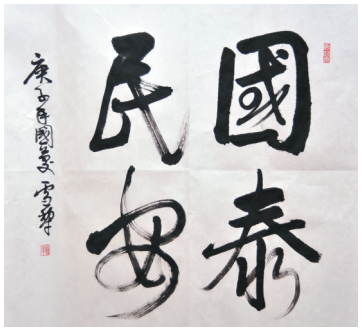 國泰
民安
庚子年國夏雪舞